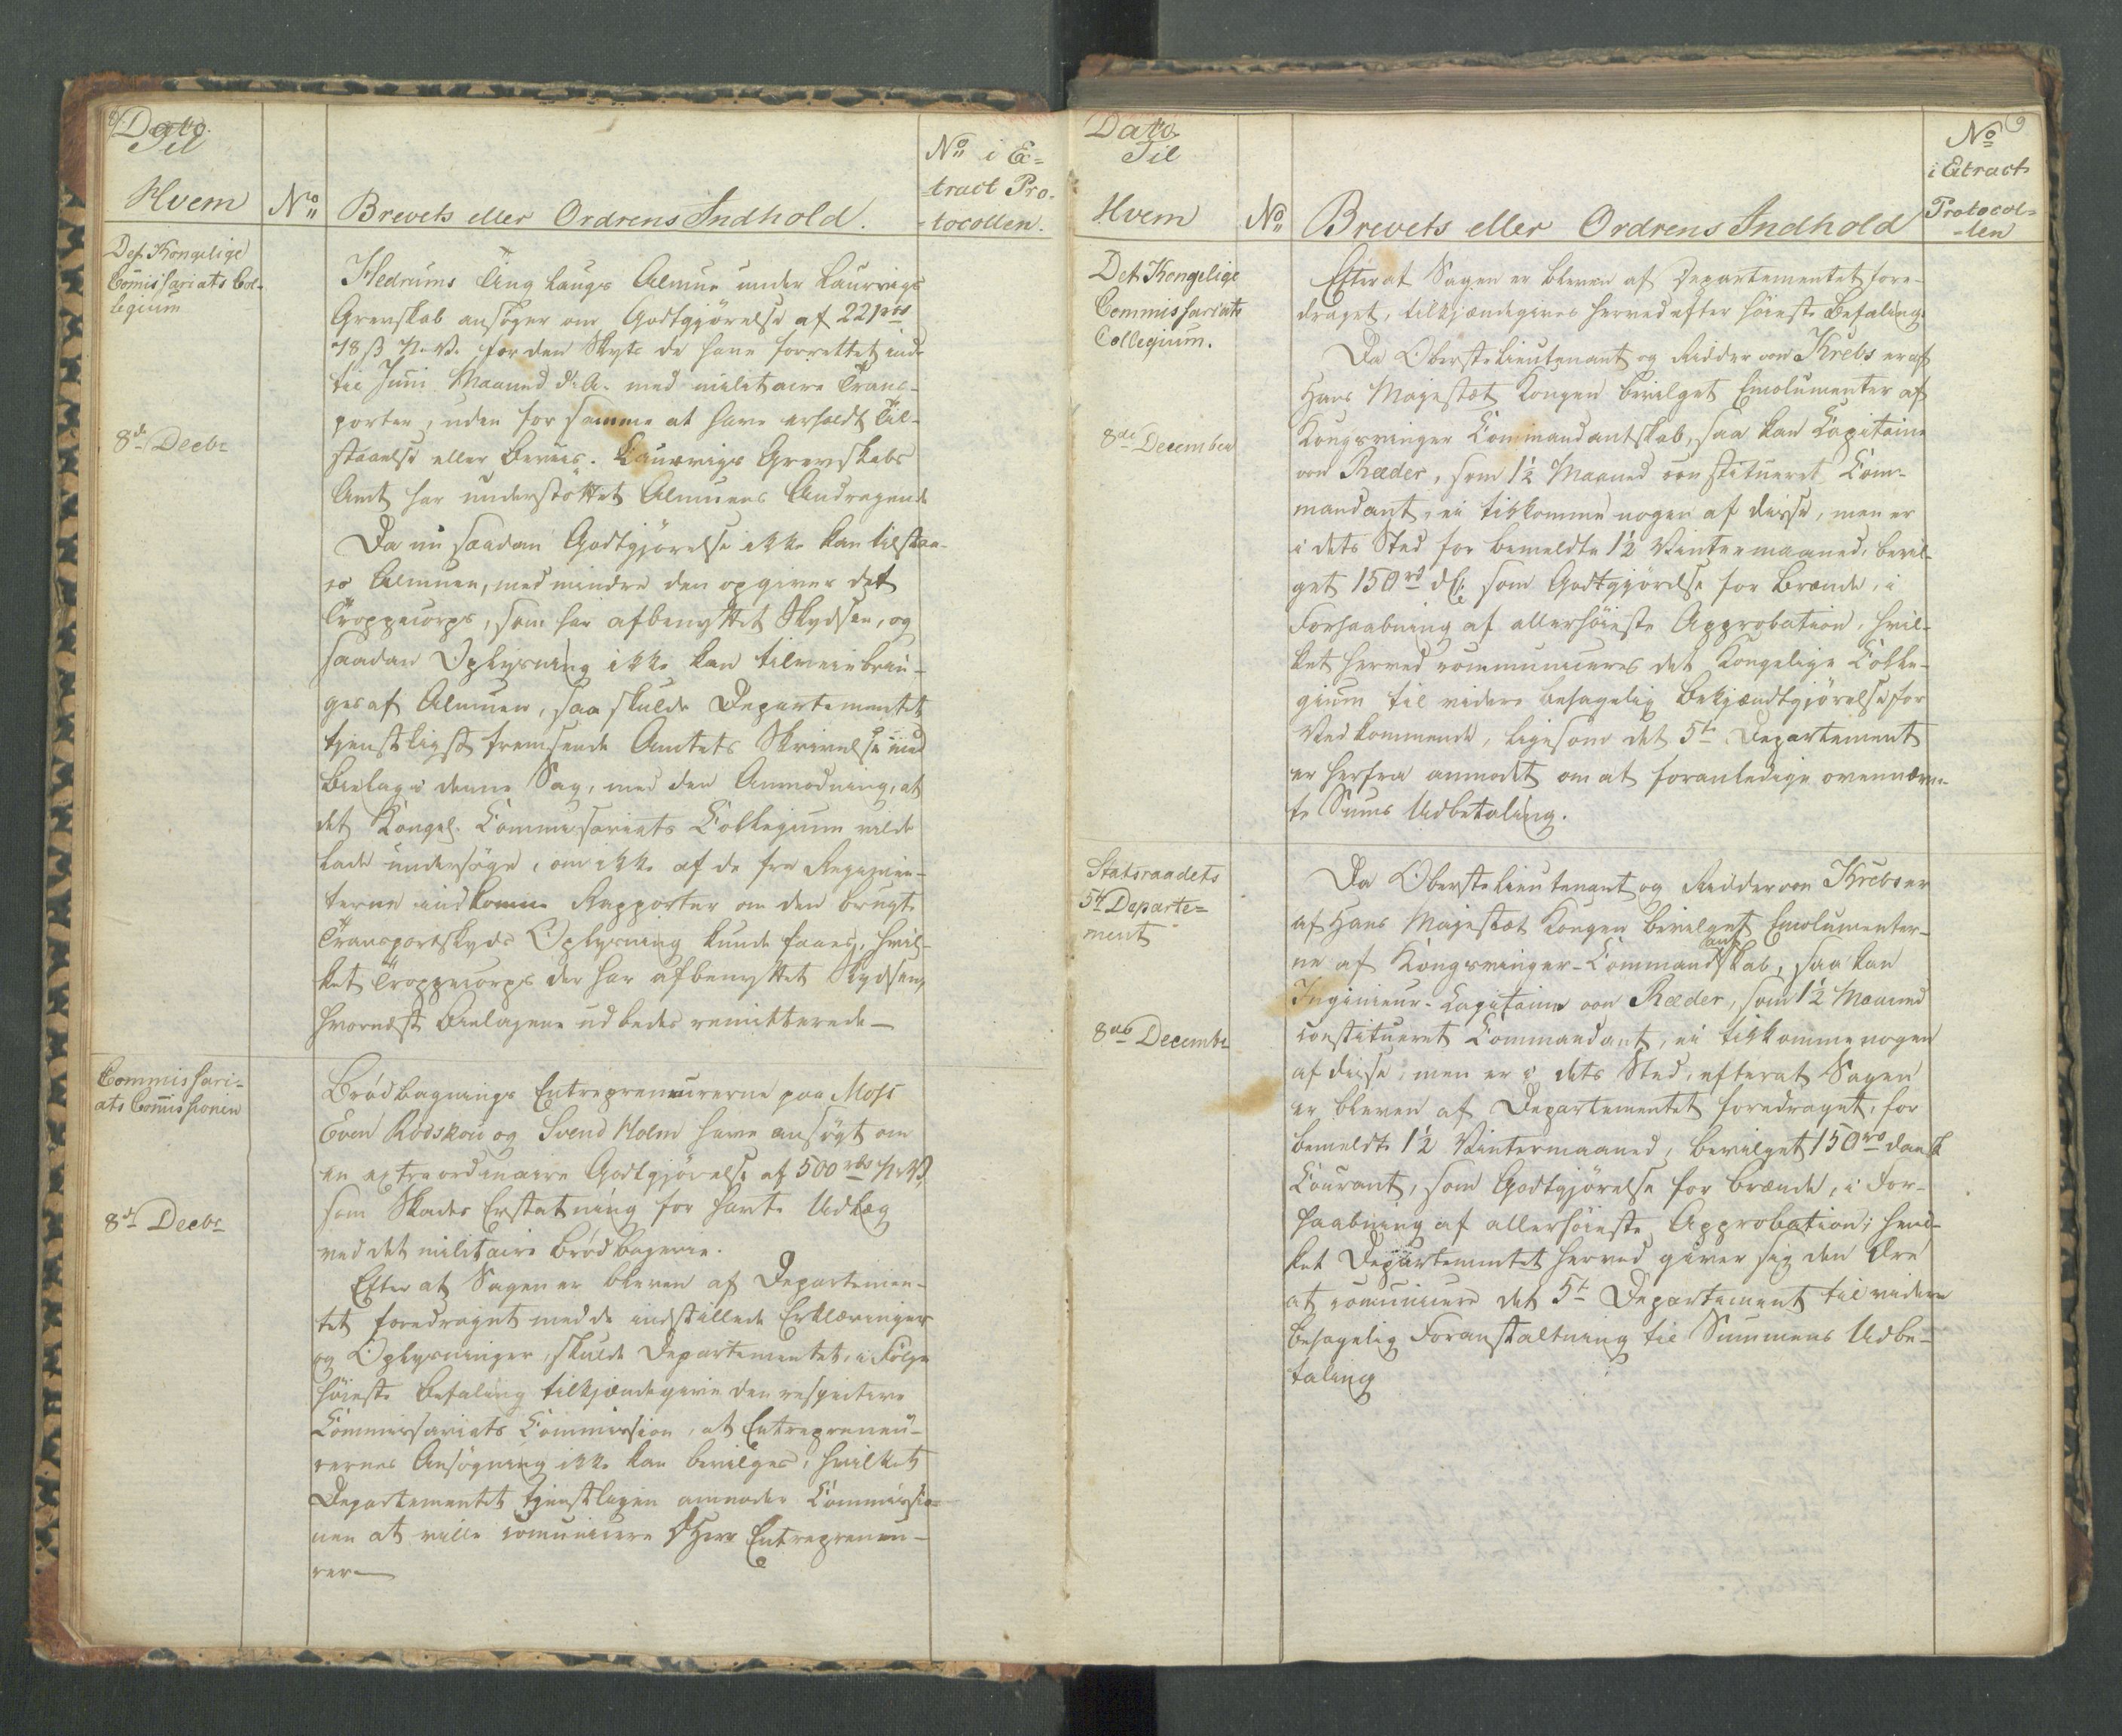 8.
Dato.
Til
Hvem
No
Brevets eller Ordrens Indhold.
No i Ex-
tract Pro-
tocollen.
Det Kongelige
Commissariats Col-
legium
8de Decbr
Hedrums Ting Laugs Almue under Laurvigs
Grevskab ansøger om Godtgjörelse af 221 rbd
78 ß N. V. for den Skyts de have forrettet ind-
til Juni Maaned d. A. med militaire Trans-
porter, uden for samme at have erholdt Til-
staaelse eller Beviis. Laurvigs Grevskabs
Amt har understøttet Almuens Andragende
Da nu saadan Godtgjörelse ikke kan tilstaa-
es Almuen, med mindre den opgiver det
Troppecorps, som har afbenyttet Skydsen, og
saadan Oplysning ikke kan tilveiebrin-
ges af Almuen, saa skulde Departementet
tjenstligst fremsende Amtets Skrivelse med
Bielage denne Sag, med den Anmodning, at
det Kongel. Commissariats Collegium vilde
lade undersøge, om ikke af de fra Regimen-
terne indkomne Rapporter om den brugte
Transportskyds Oplysning kunde faaes, hvil-
ket Troppecorps der har afbenyttet Skydsen,
hvornæst Bielagene udbedes remitterede
Commissari-
ats Commissionen
8de Decbr
Brödbagnings Entrepreneurerne paa Moss
Even Rodskou og Svend Holm have ansøgt om
en extraordinaire Godtgjörelse af 500 rbd N. V,
som Skades Erstatning for havte Udlæg
ved det militaire Brödbagerie.
Efter at Sagen er bleven af Departemen-
tet foredraget med de indstillede Erklæringer
og Oplysninger, skulde Departementet, i Følge
höieste Befaling tilkjendegive den respective
Commissariats Commission, at Entrepreneu-
rernes Ansøgning ikke kan bevilges, hvilket
Departementet tjenstligen anmoder Commissio-
nen at ville comunicere Dhrr Entrepreneu-
rer
9
Dato
Til
Hvem
No
Brevets eller Ordrens Indhold
No
i Extract
Protocol-
len
Det Kongelige
Commissariats
Collegium.
8de December
Efter at Sagen er bleven af Departementet fore-
draget, tilkjendegives herved efter höieste Befaling:
Da Oberstelieutenant og Ridder von Krebs er af
Hans Majestæt Kongen bevilget Emolumenter af
Kongsvinger Commandantskab, saa kan Capitaine
von Ræder, som 1½ Maaned constitueret Com-
mandant, ei tilkomme nogen af disse, men er
i dets Sted for bemeldte 1½ Vintermaaned, bevil-
get 150 rd dC som Godtgjörelse for Brænde, i
Forhaabning af allerhöieste Approbation, hvil-
ket herved communiceres det Kongelige Colle-
gium til videre behagelig Bekjendtgjörelse for
Vedkommende, ligesom det 5te Departement
er herfra anmodet om at foranledige ovennævn-
te Sums Udbetaling.
Statsraadets
5te Departe-
ment
8de Decembr
Da Oberstelieutenant og Ridder von Krebs er
af Hans Majestæt Kongen bevilget Emolumenter-
ne af Kongsvinger-Commandantskab, saa kan
Ingenieur-Capitaine von Ræder, som 1½ Maaned
constitueret Commandant, ei tilkomme nogen
af disse, men er i dets Sted, efterat Sagen
er bleven af Departementet foredraget, for
bemeldte 1½ Vintermaaned, bevilget 150 rd dansk
Courant, som Godtgjörelse for Brænde, i For-
haabning af allerhöieste Approbation; hvil-
ket Departementet herved giver sig den Ære
at comunicere det 5te Departement til videre
behagelig Foranstaltning til Summens Udbe-
taling